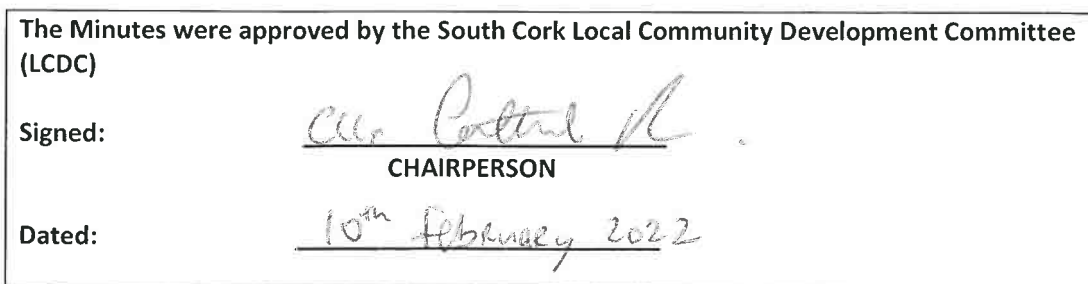 The Minutes were approved by the South Cork Local Community Development Committee
(LCDC)
Signed:
CHAIRPERSON
Dated: 10th February 2022